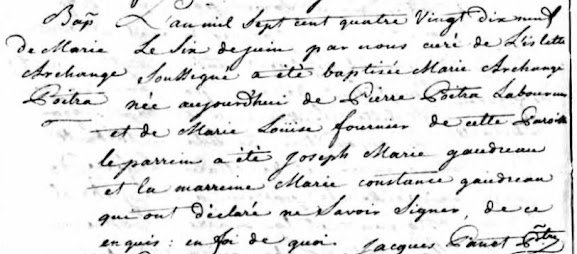 Bap. L'an mil Sept cent quatre Vingt dix neuf
de Marie Le Six de juin par nous curé de L'islette
Archange Soussigné a été baptisée Marie Archange
Poitra née aujourdhui de Pierre Poitra Laboureur
et de Marie Loüise fournier de cette Paroisse
le parrein a été Joseph Marie gaudreau
et la marreine Marie constance gaudreau
qui ont déclaré ne Savoir Signer, de ce
enquis: en foi de quoi Jacques Panet Ptre